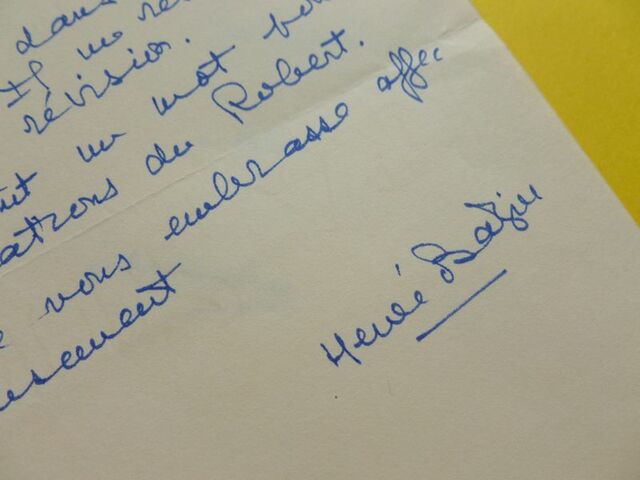 dans
Il me re
révision.
un mot pour
ations du Robert.
vous embrasse affec
Hervé Bazin